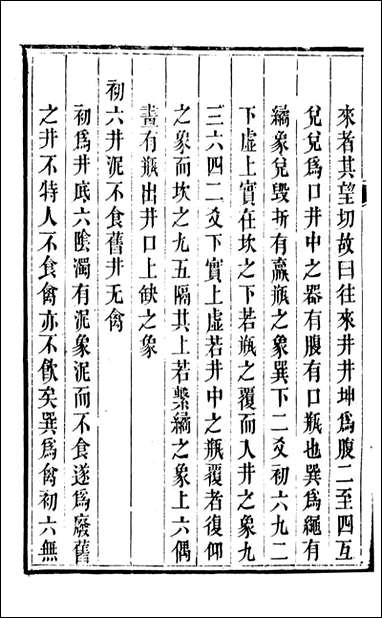 來者其望切故曰往來井井坤爲腹二至四互
兌兌爲口井中之器有腹有口瓶也巽爲繩有
繘象兌毀折有羸瓶之象巽下二爻初六九二
下虛上實在坎之下若瓶之覆而入井之象九
三六四二爻下實上虛若井中之瓶覆者復仰
之象而坎之九五隔其上若繫繘之象上六偶
畫有瓶出井口上缺之象
初六井泥不食舊井无禽
初爲井底六陰濁有泥象泥而不食遂爲廢舊
之井不特人不食禽亦不飮矣巽爲禽初六無